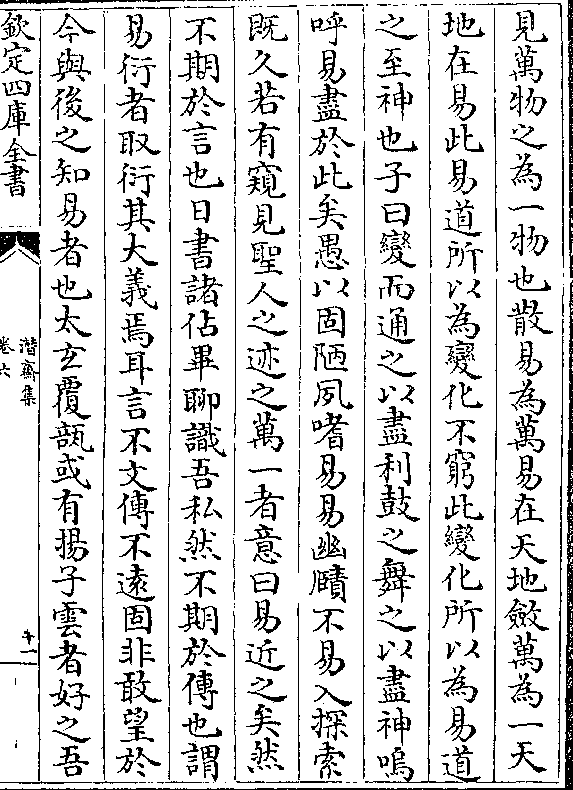 見萬物之為一物也散易為萬易在天地斂萬為一天
地在易此易道所以為變化不窮此變化所以為易道
之至神也子曰變而通之以盡利鼓之舞之以盡神嗚
呼易盡於此矣愚以固陋夙嗜易易幽賾不易入探索
既久若有窺見聖人之迹之萬一者意曰易近之矣然
不期於言也日書諸佔畢聊識吾私然不期於傳也謂
易衍者取衍其大義焉耳言不文傳不遠固非敢望於
今與後之知易者也太玄覆瓿或有揚子雲者好之吾
欽定四庫全書
潛齋集
卷六
十一